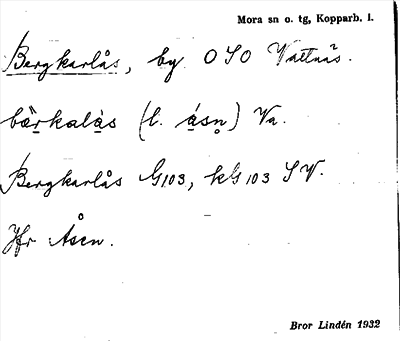 Mora sn o. tg, Kopparb. l.
Bergkarlås, by OSO Vattnäs.
bæ̀rkalàs (l. ásn̥) Va.
Bergkarlås G103, kG103 SV.
Jfr Åsen.
Bror Lindén 1932